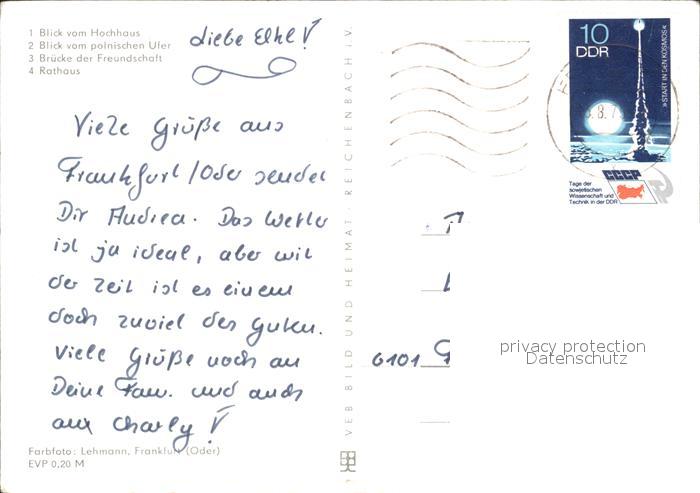 1 Blick vom Hochhaus
2 Blick vom polnischen Ufer
3 Brücke der Freundschaft
4 Rathaus
Liebe Elke!
Viele Grüße aus
Frankfurt/Oder sendet
Dir Andrea. Das Wetter
ist ja ideal, aber mit
der Zeit ist es einem
doch zuviel des Guten.
Viele Grüße noch an
Deine Fam. und auch
an Charly!
Farbfoto: Lehmann, Frankfurt (Oder)
EVP 0,20 M
VEB BILD UND HEIMAT REICHENBACH i. V.
10
DDR
»START IN DEN KOSMOS«
CCCP
Tage der
sowjetischen
Wissenschaft und
Technik in der DDR
6101
privacy protection
Datenschutz